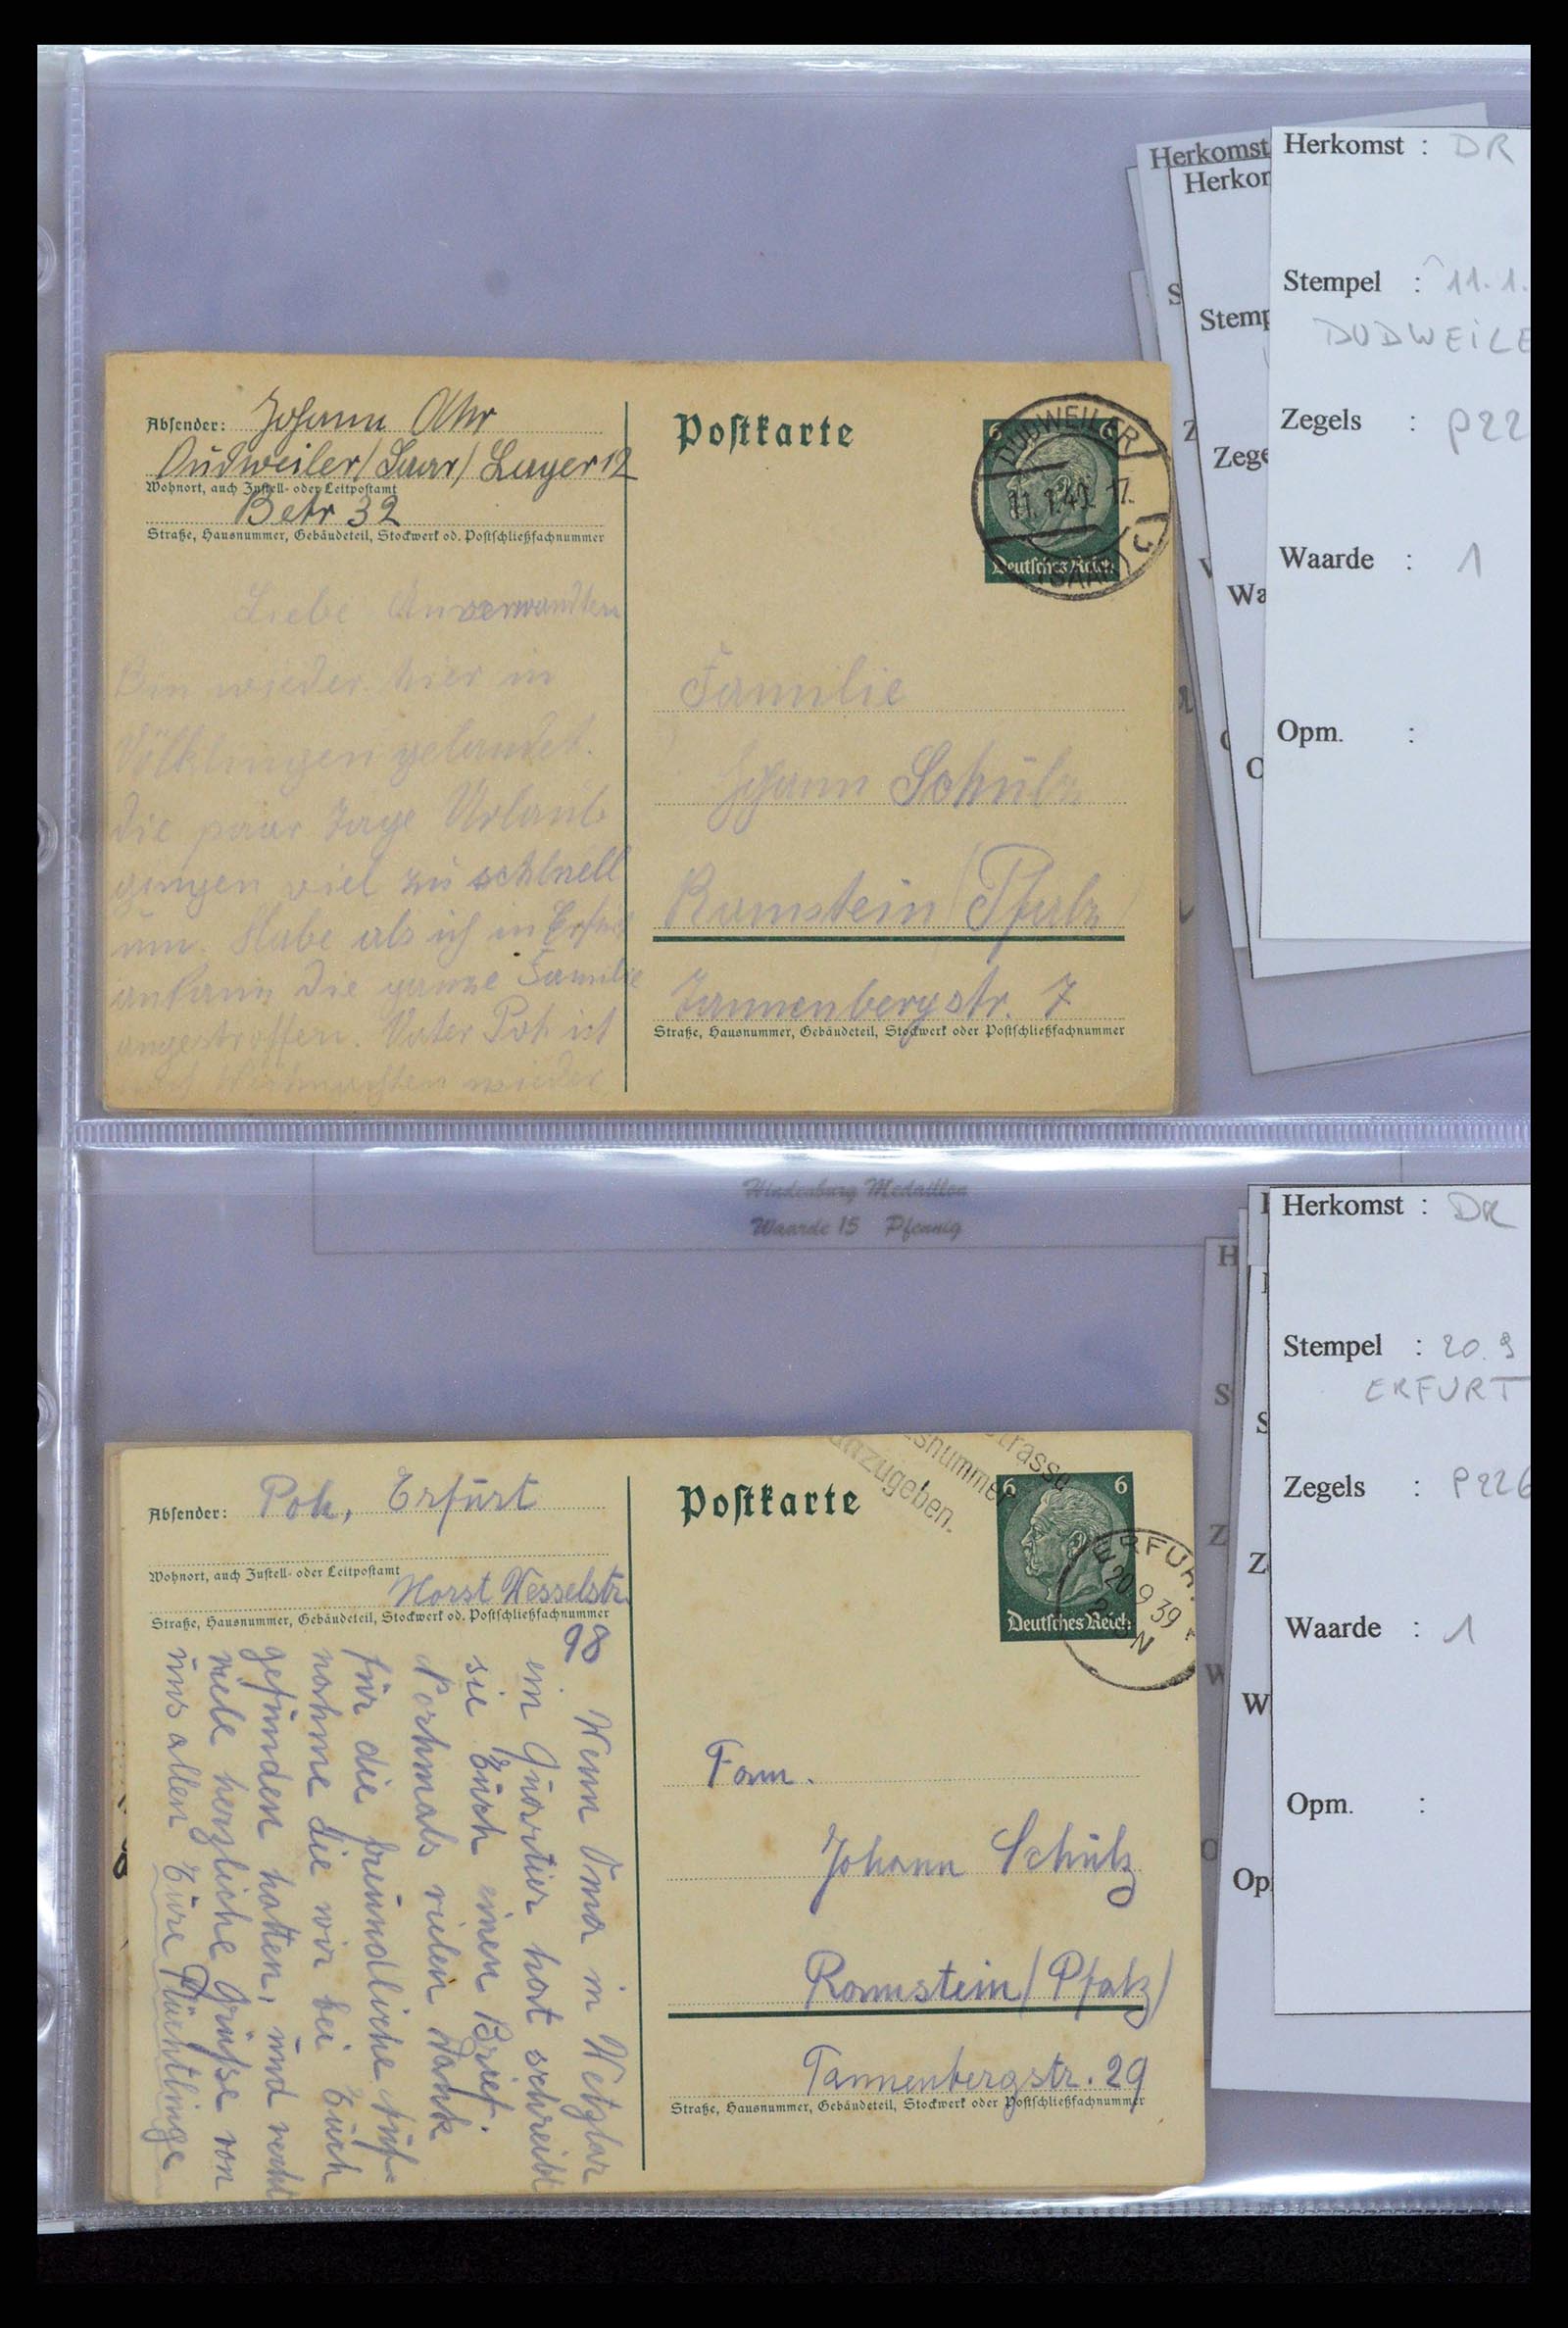 Absender: Johann Ohr
Dudweiler/Saar/Lager 12
Wohnort, auch Zustell- oder Leitpostamt
Betr 32
Straße, Hausnummer, Gebäudeteil, Stockwerk od. Postschließfachnummer
Liebe Anverwandten
Bin wieder hier in
Völklingen gelandet.
die paar Tage Urlaub
gingen viel zu schlnell
um. Habe als ich in Erfurt
ankam die ganze Familie
angestroffen. Vater Poh ist
Weihnachten wieder
Postkarte
6 6
Deutsches Reich
DUDWEILER
11.1.40. 17.
(SAAR)
Familie
Johann Schülz
Ramstein/Pfalz/
Tannenbergstr. 7
Straße, Hausnummer, Gebäudeteil, Stockwerk oder Postschließfachnummer
Herkomst
Herkor
Stemp
Zege
Wa
Herkomst : DR
Stempel : 11.1.
DUDWEILE
Zegels : P22
Waarde : 1
Opm. :
Hindenburg Medaillon
Waarde 15 Pfennig
Absender: Poh, Erfürt
Wohnort, auch Zustell- oder Leitpostamt
Horst Wesselstr.
Straße, Hausnummer, Gebäudeteil, Stockwerk od. Postschließfachnummer
98
Wenn Oma in Wetzlar
ein Quartier hat schreibt
sie Euch einen Brief.
Nochmals vielen Dank
für die freundliche Auf=
nahme die wir bei Euch
gefunden hatten, und recht
viele herzliche Grüße von
uns allen Eure Flüchtlinge
Postkarte
trasse
snummer
anzugeben.
6 6
Deutsches Reich
ERFUR
20.9 39
N
Fam.
Johann Schülz
Ramstein/Pfalz/
Tannenbergstr. 29
Straße, Hausnummer, Gebäudeteil, Stockwerk oder Postschließfachnummer
Op
Herkomst : DR
Stempel : 20.9
ERFURT
Zegels : P226
Waarde : 1
Opm. :